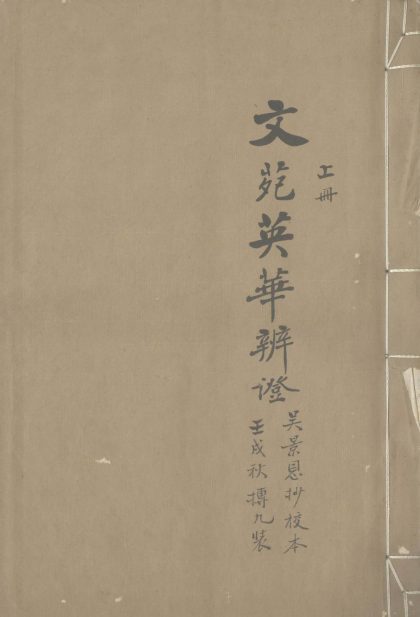 文苑英華辨證
上冊
吴景恩抄校本
壬戌秋摶九裝